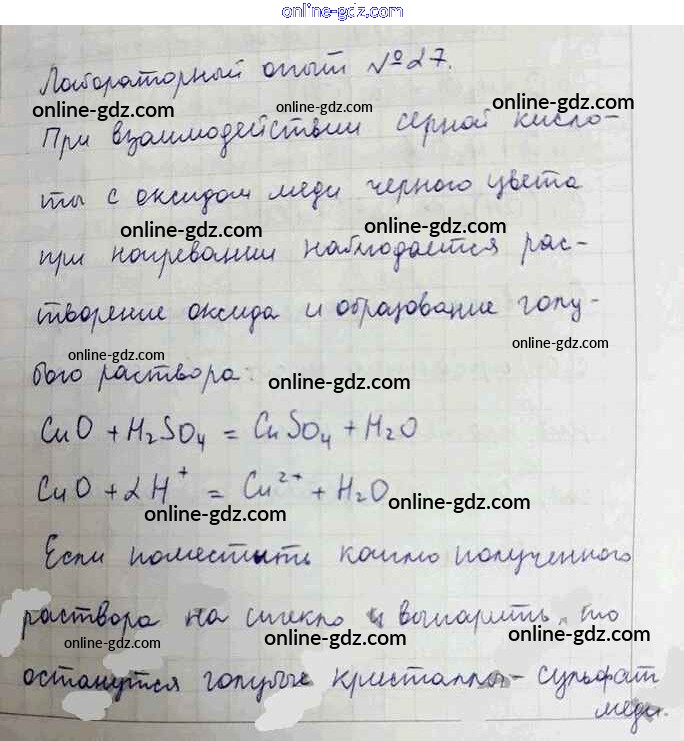 online-gdz.com
Лабораторный опыт №27.
online-gdz.com online-gdz.com online-gdz.com
При взаимодействии серной кисло-
ты с оксидом меди черного цвета
online-gdz.com online-gdz.com
при нагревании наблюдается рас-
творение оксида и образование голу-
online-gdz.com online-gdz.com
бого раствора:
online-gdz.com
CuO + H₂SO₄ = CuSO₄ + H₂O
CuO + 2H⁺ = Cu²⁺ + H₂O
online-gdz.com online-gdz.com
Если поместить каплю полученного
раствора на стекло и выпарить, то
online-gdz.com online-gdz.com online-gdz.com
останутся голубые кристаллы - сульфат
меди.